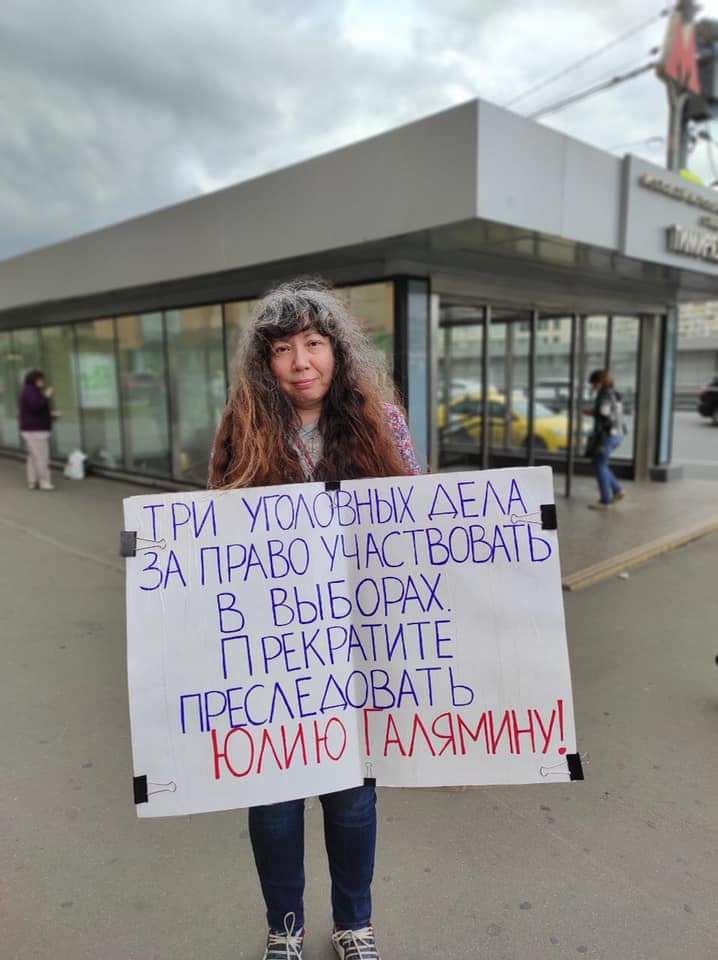 М
ТРИ УГОЛОВНЫХ ДЕЛА
ЗА ПРАВО УЧАСТВОВАТЬ
В ВЫБОРАХ.
ПРЕКРАТИТЕ
ПРЕСЛЕДОВАТЬ
ЮЛИЮ ГАЛЯМИНУ!